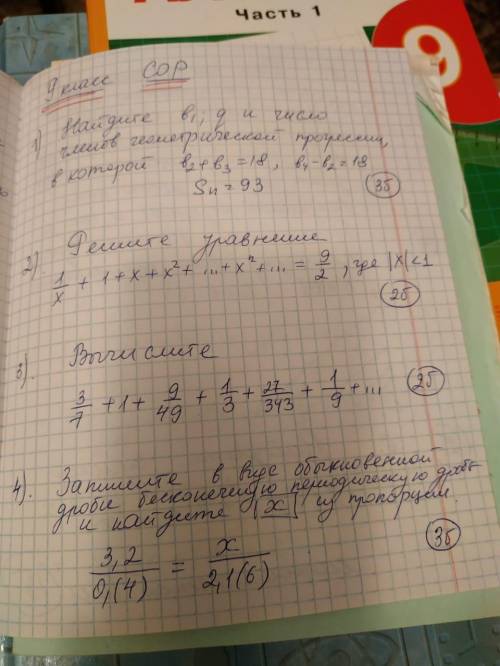 Часть 1
9
9 класс СОР
1) Найдите b₁, q и число
членов геометрической прогрессии,
в которой b₂+b₃=18, b₄-b₂=18
Sn=93
3б
2) Решите уравнение
1/x + 1 + x + x² + ... + xⁿ + ... = 9/2, где |x|<1
2б
3). Вычислите
3/7 + 1 + 9/49 + 1/3 + 27/343 + 1/9 + ...
2б
4). Запишите в виде обыкновенной
дроби бесконечную периодическую дробь
и найдите x из пропорции.
3,2/0,(4) = x/2,1(6)
3б